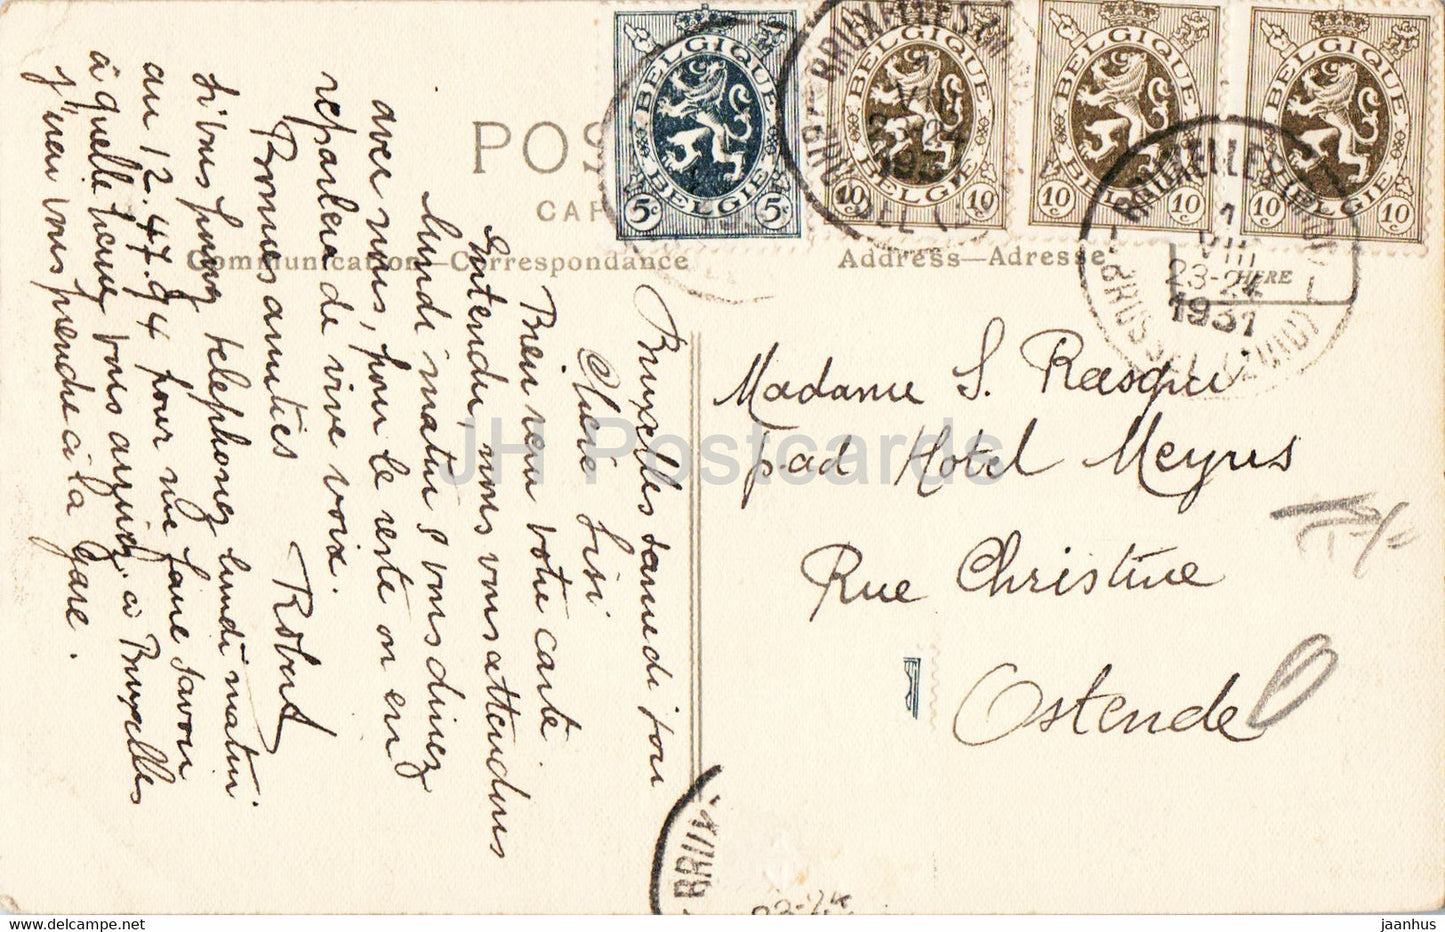 BELGIQUE
BELGIE
5c 5c
BELGIQUE
BELGIE
10c 10c
BELGIQUE
BELGIE
10c 10c
BELGIQUE
BELGIE
10c 10c
BRUXELLES (MIDI)
BRUSSEL (ZUID)
1
VIII
23-24
1931
POS
CAR
Communication—Correspondance
Address—Adresse
HERE
Bruxelles samedi soir
Chère Lisi
Bien reçu votre carte
Entendu, nous vous attendons
lundi matin & vous dinez
avec nous, pour le reste on en
reparlera de vive voix.
Bonnes amitiés Robert
Si vous pouvez telephonez lundi matin
au 12.47.94 pour me faire savoir
à quelle heure vous arrivez à Bruxelles
j'irai vous prendre à la gare.
Madame S.
pad Hotel Meyus
Rue Christine
Ostende
BRUX
23-24
JH Postcards
www.delcampe.net
jaanhus